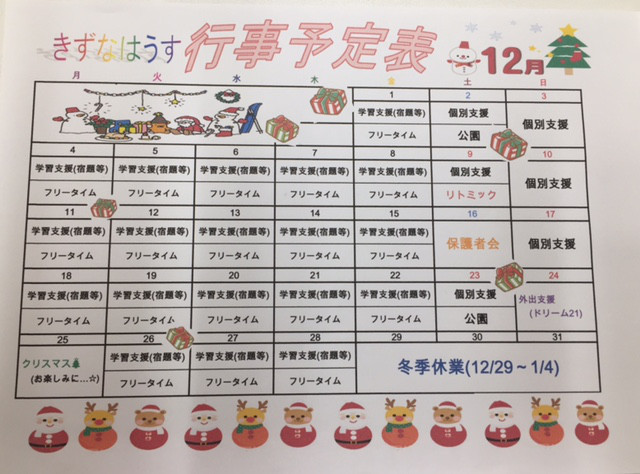 きずなはうす 行事予定表 12月
月 火 水 木 金 土 日
1 2 3
学習支援(宿題等) 個別支援 個別支援
フリータイム 公園
4 5 6 7 8 9 10
学習支援(宿題等) 学習支援(宿題等) 学習支援(宿題等) 学習支援(宿題等) 学習支援(宿題等) 個別支援 個別支援
フリータイム フリータイム フリータイム フリータイム フリータイム リトミック
11 12 13 14 15 16 17
学習支援(宿題等) 学習支援(宿題等) 学習支援(宿題等) 学習支援(宿題等) 学習支援(宿題等) 保護者会 個別支援
フリータイム フリータイム フリータイム フリータイム フリータイム
18 19 20 21 22 23 24
学習支援(宿題等) 学習支援(宿題等) 学習支援(宿題等) 学習支援(宿題等) 学習支援(宿題等) 個別支援 外出支援
フリータイム フリータイム フリータイム フリータイム フリータイム 公園 (ドリーム21)
25 26 27 28 29 30 31
クリスマス 学習支援(宿題等) 学習支援(宿題等) 学習支援(宿題等) 冬季休業(12/29～1/4)
(お楽しみに…☆) フリータイム フリータイム フリータイム